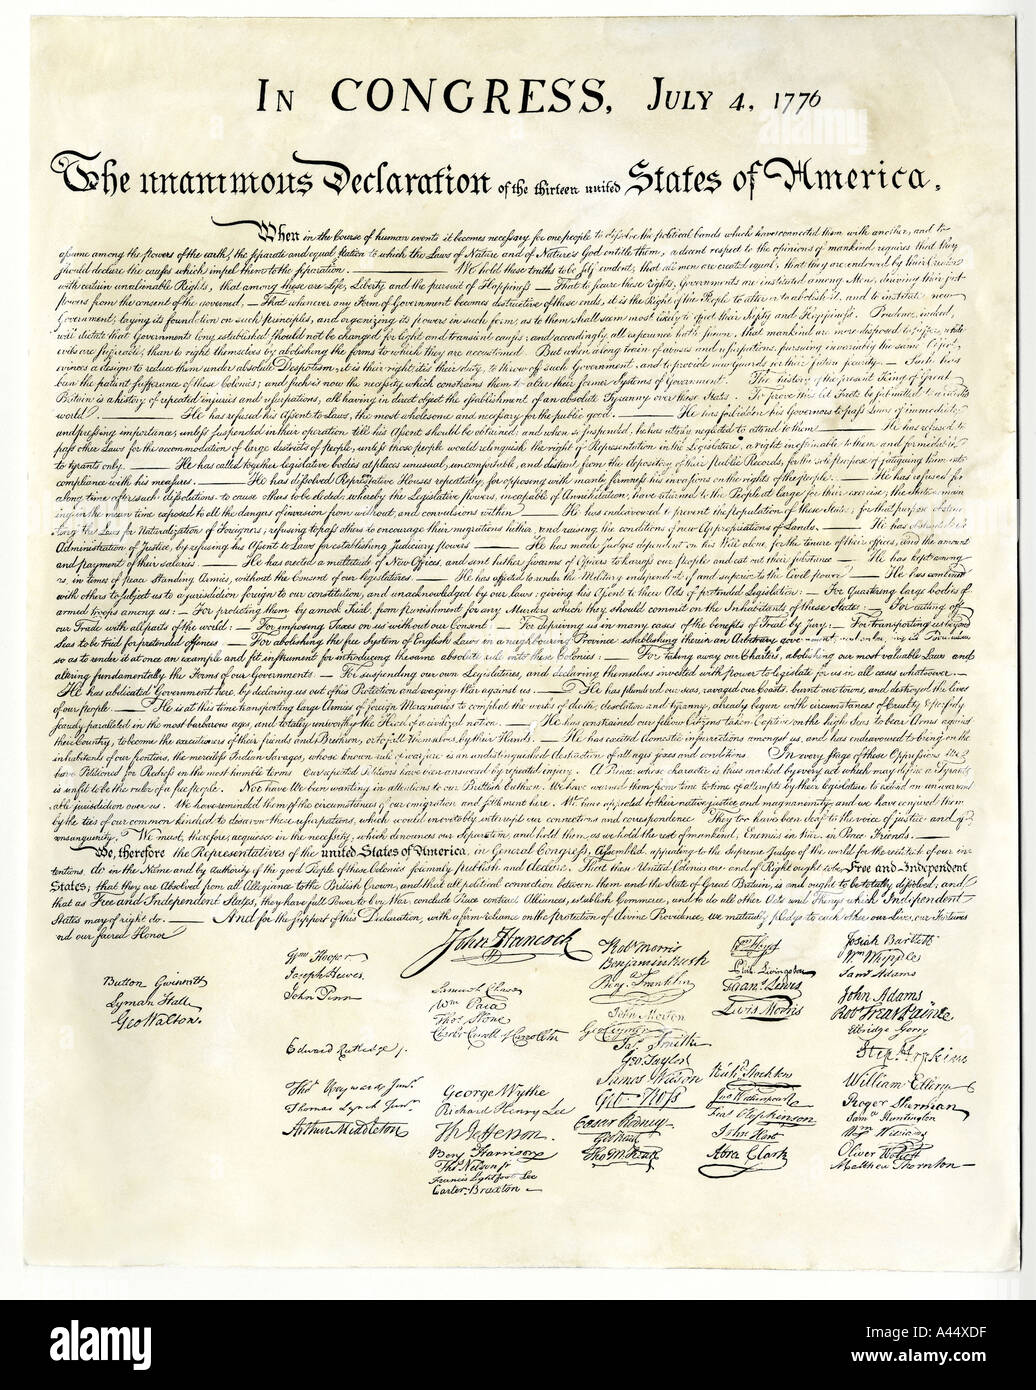 In CONGRESS, July 4, 1776
The unanimous Declaration of the thirteen united States of America,
When in the Course of human events it becomes necessary for one people to dissolve the political bands which have connected them with another, and to
assume among the powers of the earth, the separate and equal station to which the Laws of Nature and of Nature's God entitle them, a decent respect to the opinions of mankind requires that they
should declare the causes which impel them to the separation. We hold these truths to be self evident, that all men are created equal, that they are endowed by their Creator
with certain unalienable Rights, that among these are Life, Liberty and the pursuit of Happiness — That to secure these rights, Governments are instituted among Men, deriving their just
powers from the consent of the governed, — That whenever any Form of Government becomes destructive of these ends, it is the Right of the People to alter or to abolish it, and to institute new
Government, laying its foundation on such principles, and organizing its powers in such form, as to them shall seem most likely to effect their Safety and Happiness. Prudence, indeed,
will dictate that Governments long established should not be changed for light and transient causes; and accordingly all experience hath shewn, that mankind are more disposed to suffer, while
evils are sufferable, than to right themselves by abolishing the forms to which they are accustomed. But when a long train of abuses and usurpations, pursuing invariably the same Object,
evinces a design to reduce them under absolute Despotism, it is their right, it is their duty, to throw off such Government, and to provide new Guards for their future security. — Such has
been the patient sufferance of these Colonies; and such is now the necessity which constrains them to alter their former Systems of Government. The history of the present King of Great
Britain is a history of repeated injuries and usurpations, all having in direct object the establishment of an absolute Tyranny over these States. To prove this let Facts be submitted to a candid
world. — He has refused his Assent to Laws, the most wholesome and necessary for the public good. — He has forbidden his Governors to pass Laws of immediate
and pressing importance, unless suspended in their operation till his Assent should be obtained; and when so suspended, he has utterly neglected to attend to them — He has refused to
pass other Laws for the accommodation of large districts of people, unless those people would relinquish the right of Representation in the Legislature, a right inestimable to them and formidable
to tyrants only. — He has called together legislative bodies at places unusual, uncomfortable, and distant from the depository of their Public Records, for the sole purpose of fatiguing them into
compliance with his measures. — He has dissolved Representative Houses repeatedly, for opposing with manly firmness his invasions on the rights of the people. — He has refused for
a long time after such dissolutions to cause others to be elected, whereby the Legislative powers, incapable of Annihilation, have returned to the People at large for their exercise; the
in the mean time exposed to all the dangers of invasion from without, and convulsions within — He has endeavoured to prevent the population of these States; for that purpose
the Laws for Naturalization of Foreigners; refusing to pass others to encourage their migrations hither, and raising the conditions of new Appropriations of Lands. — He has obstructed the
Administration of Justice, by refusing his Assent to Laws for establishing Judiciary powers — He has made Judges dependent on his Will alone, for the tenure of their offices, and the amount
and payment of their salaries. — He has erected a multitude of New Offices, and sent hither swarms of Officers to harass our People and eat out their substance — He has kept among
us, in times of peace Standing Armies, without the Consent of our legislatures. — He has affected to render the Military independent of and superior to the Civil power — He has combined
with others to subject us to a jurisdiction foreign to our constitution, and unacknowledged by our laws; giving his Assent to their Acts of pretended Legislation: — For Quartering large bodies of
armed troops among us: — For protecting them by a mock Trial, from punishment for any Murders which they should commit on the Inhabitants of these States: — For cutting off
our Trade with all parts of the world: — For imposing Taxes on us without our Consent: — For depriving us in many cases of the benefits of Trial by Jury: — For transporting us beyond
Seas to be tried for pretended offences — For abolishing the free System of English Laws in a neighbouring Province, establishing therein an Arbitrary government,
so as to render it at once an example and fit instrument for introducing the same absolute rule into these Colonies: — For taking away our Charters, abolishing our most valuable Laws and
altering fundamentally the Forms of our Governments. — For suspending our own Legislatures, and declaring themselves invested with power to legislate for us in all cases whatsoever. —
He has abdicated Government here, by declaring us out of his Protection and waging War against us. — He has plundered our seas, ravaged our Coasts, burnt our towns, and destroyed the lives
of our people. — He is at this time transporting large Armies of foreign Mercenaries to compleat the works of death, desolation and tyranny, already begun with circumstances of Cruelty & perfidy
paralleled in the most barbarous ages, and totally unworthy the Head of a civilized nation. — He has constrained our fellow Citizens taken Captive on the high Seas to bear Arms against
their Country, to become the executioners of their friends and Brethren, or to fall themselves by their Hands. — He has excited domestic insurrections amongst us, and has endeavoured to bring on the
inhabitants of our frontiers, the merciless Indian Savages, whose known rule of warfare is an undistinguished destruction of all ages sexes and conditions. In every stage of these Oppressions We
have Petitioned for Redress in the most humble terms Our repeated Petitions have been answered by repeated injury. A Prince, whose character is thus marked by every act which may define a Tyrant,
is unfit to be the ruler of a free people. Nor have We been wanting in attentions to our Brittish brethren. We have warned them from time to time of attempts by their legislature to extend an
jurisdiction over us. We have reminded them of the circumstances of our emigration and settlement here. We have appealed to their native justice and magnanimity, and we have conjured them
by the ties of our common kindred to disavow these usurpations, which would inevitably interrupt our connections and correspondence They too have been deaf to the voice of justice and of
consanguinity. We must, therefore, acquiesce in the necessity, which denounces our Separation, and hold them, as we hold the rest of mankind, Enemies in War, in Peace Friends. —
We, therefore the Representatives of the united States of America, in General Congress, Assembled, appealing to the Supreme Judge of the world for the rectitude of our in-
tentions do in the Name and by authority of the good People of these Colonies solemnly publish and declare. That these United Colonies are and of Right ought to be Free and Independent
States; that they are Absolved from all Allegiance to the British Crown, and that all political connection between them and the State of Great Britain, is and ought to be totally dissolved, and
that as Free and Independent States, they have full Power to levy War, conclude Peace contract Alliances, establish Commerce, and to do all other Acts and Things which Independent
States may of right do. — And for the support of this Declaration, with a firm reliance on the protection of divine Providence, we mutually pledge to each other our Lives, our Fortunes
nd our sacred Honor
Button Gwinnett
Lyman Hall
Geo Walton.
Wm Hooper
Joseph Hewes
John Penn
Edward Rutledge Jr.
Thos Heyward Junr.
Thomas Lynch Junr.
Arthur Middleton
John Hancock
Samuel Chase
Wm Paca
Thos Stone
Charles Carroll of Carrollton
George Wythe
Richard Henry Lee
Th Jefferson.
Benj Harrison
Thos Nelson jr
Francis Lightfoot Lee
Carter Braxton
Robt Morris
Benjamin Rush
Benja Franklin
John Morton
Geo Clymer
Jas Smith
Geo Taylor
James Wilson
Geo Ross
Caesar Rodney
Geo Read
Tho M:Kean
Wm Floyd
Phil Livingston
Frans Lewis
Lewis Morris
Richd Stockton
Jno Witherspoon
Fras Hopkinson
John Hart
Abra Clark
Josiah Bartlett
Wm Whipple
Saml Adams
John Adams
Robt Treat Paine
Elbridge Gerry
Step. Hopkins
William Ellery
Roger Sherman
Saml Huntington
Wm Williams
Oliver Wolcott
Matthew Thornton
alamy
Image ID: A44XDF
www.alamy.com